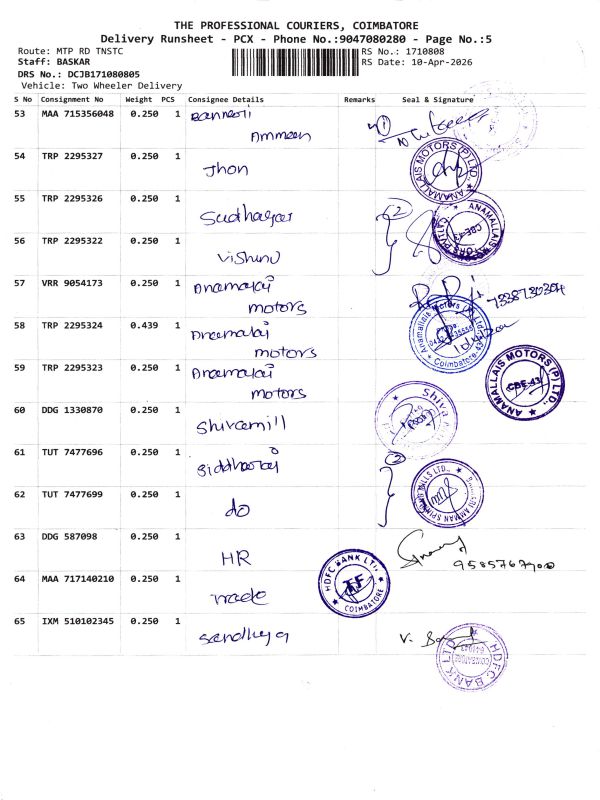 THE PROFESSIONAL COURIERS, COIMBATORE
Delivery Runsheet - PCX - Phone No.:9047080280 - Page No.:5
Route: MTP RD TNSTC RS No.: 1710808
Staff: BASKAR RS Date: 10-Apr-2026
DRS No.: DCJB171080805
Vehicle: Two Wheeler Delivery
S No Consignment No Weight PCS Consignee Details Remarks Seal & Signature
53 MAA 715356048 0.250 1
Ammeen
54 TRP 2295327 0.250 1 Jhon
ANAMALLAIS MOTORS (P) LTD.,
55 TRP 2295326 0.250 1 Sudhagar
ANAMALLAIS MOTORS CBE-43
56 TRP 2295322 0.250 1 Vishnu
57 VRR 9054173 0.250 1 Anamalai
motors
58 TRP 2295324 0.439 1 Anamalai
motors
Anamallais Motors (P) Ltd.
Coimbatore-43
59 TRP 2295323 0.250 1 Anamalai
motors
ANAMALLAIS MOTORS (P) LTD., CBE-43
60 DDG 1330870 0.250 1 Shivamill
Shiva
61 TUT 7477696 0.250 1 Siddharaj
62 TUT 7477699 0.250 1 do
63 DDG 587098 0.250 1 HR
64 MAA 717140210 0.250 1
HDFC BANK LTD. COIMBATORE
65 IXM 510102345 0.250 1 Sandhya
HDFC BANK LTD COIMBATORE 641043